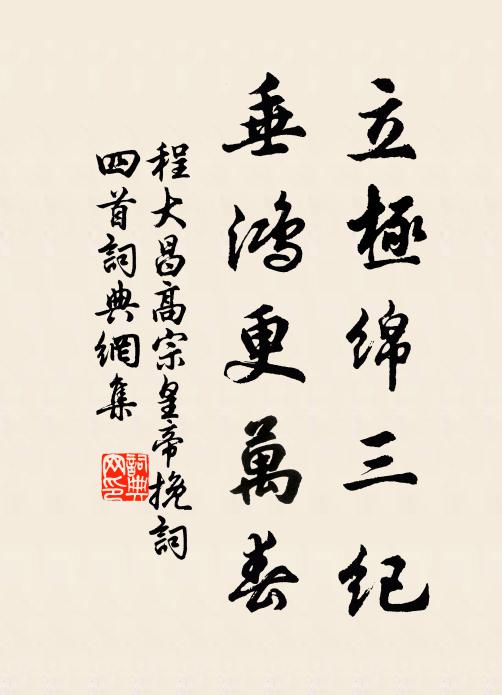 立極綿三紀
垂鴻更萬春
程大昌高宗皇帝挽詞
四首詞典網集
詞典网印